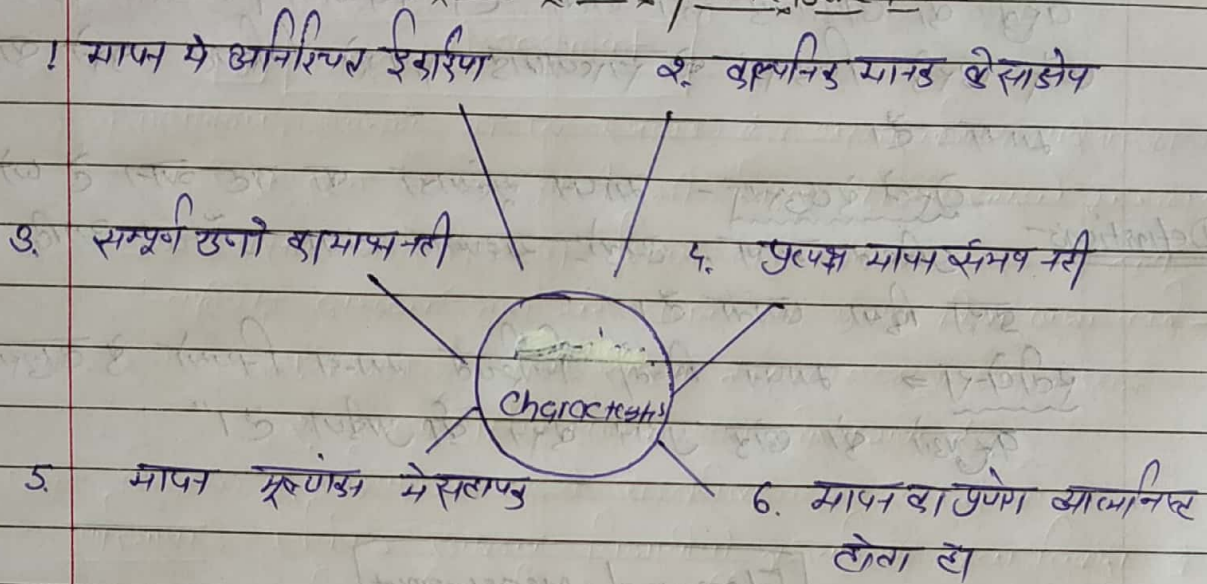 1. मापन मे अनिश्चित ईकाईया
2. काल्पनिक मानक के सापेक्ष
3. सम्पूर्ण गुणो का मापन नही
4. प्रत्यक्ष मापन संभव नही
Charactestis
5. मापन मूल्यांकन मे सहायक
6. मापन का प्रयोग आत्मनिष्ट
होता है।